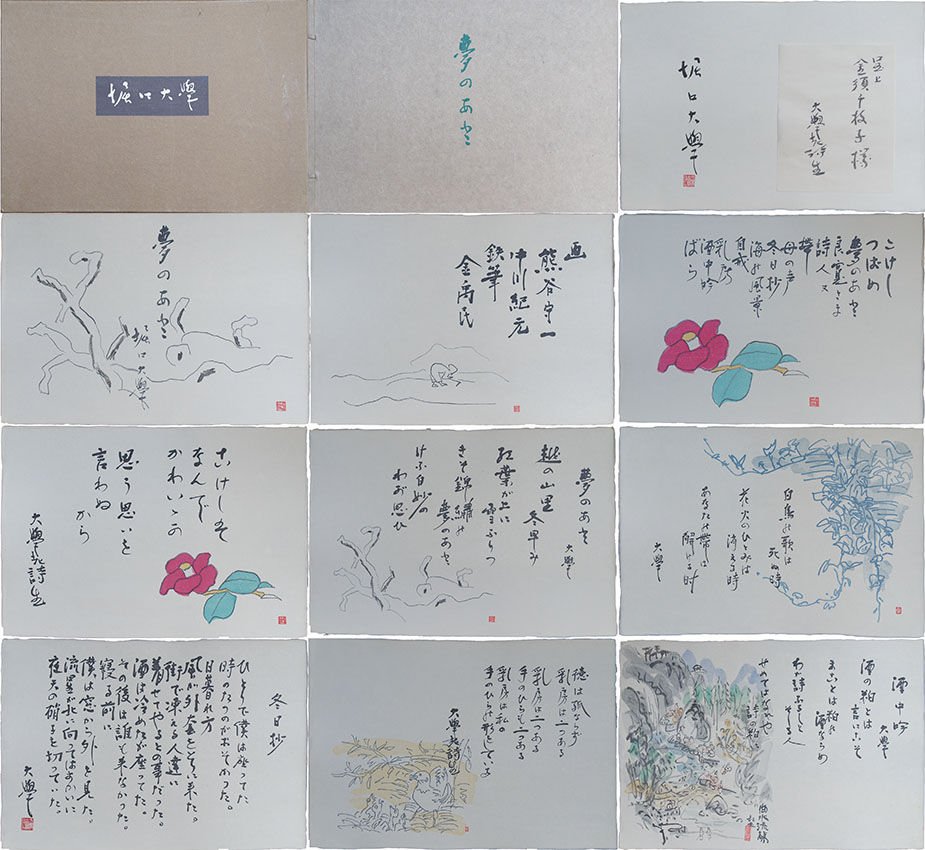 堀口大學
夢のあと
呈上
金須千枝子様
大學老詩生
堀口大學
夢のあと
堀口大學
画
熊谷守一
中川紀元
鉄筆
金禹民
こけし
つばめ
夢のあと
良寛さま
詩人ス
帯
母の声
冬日抄
海の風景
自我
乳房
酒中吟
ばら
こけしは
なんで
かわいゝか
思う思いを
言わぬ
から
大學老詩生
夢のあと
大學
越の山里
冬早み
紅葉が上に
雪ふりつ
きそ錦繍の
夢のあと
けふ白妙の
わが思ひ
白鳥の歌は
死ぬ時
花火のひとみは
消える時
あなたの帯は
解ける時
大學
冬日抄
ひとりで僕は座ってた。
時のたつのがおそかった。
日暮れ方
風が外套をとりに来た。
街で凍える人達に
着せてやるとの事だった。
酒はさめたが座ってた。
その後は誰も来なかった。
寝る前に
僕は窓から外を見た。
流星が北に向ってはるかに
夜天の硝子を切っていた。
大學
徳は孤ならず
乳房は二つある
手のひらも二つある
乳房は私の
手のひらの形している
大學老詩生
酒中吟
大學
酒の粕とは
言にこそ
まことは粕の
酒ならめ
わが詩ぶみを
そしる人
せめてはなめや
詩の粕
曲水流觴